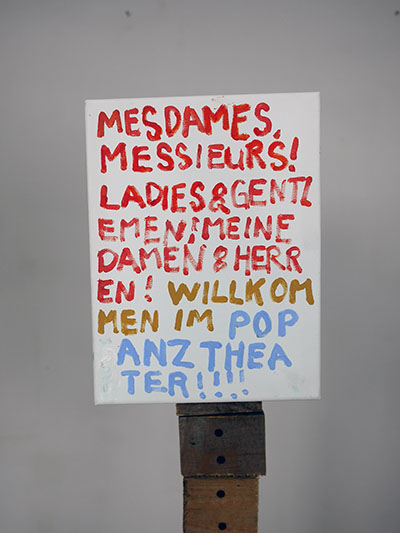 MESDAMES,
MESSIEURS!
LADIES&GENTZ
EMEN!MEINE
DAMEN&HERR
EN! WILLKOM
MEN IM POP
ANZ THEA
TER!!!!